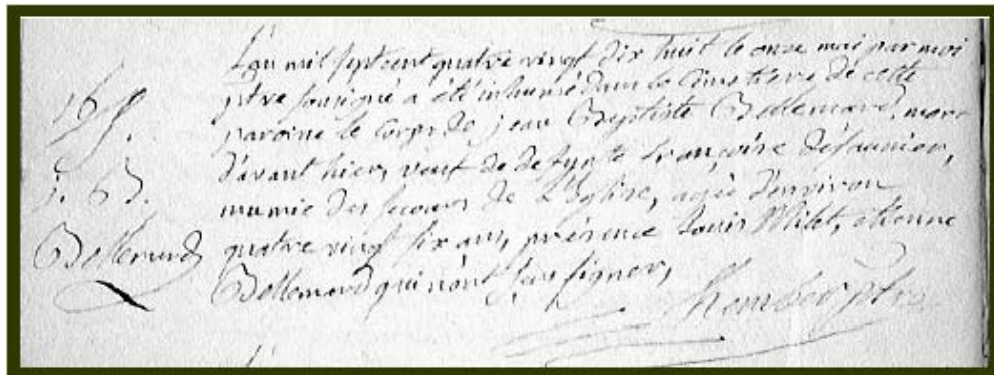 L'an mil sept cent quatre vingt dix huit le onze mai par moi
ptre sousigné a été inhumé dans le Cimetiere de cette
paroisse le Corps de jean Baptiste Bellemard, mort
d'avant hier, veuf de defunte françoise desaunier,
munie des secours de L'Eglise, agée d'environ
quatre vingt six ans, présence Louis Milet, etienne
Bellemard qui n'ont sçu signer,
S.
j. B.
Bellemard
ptre